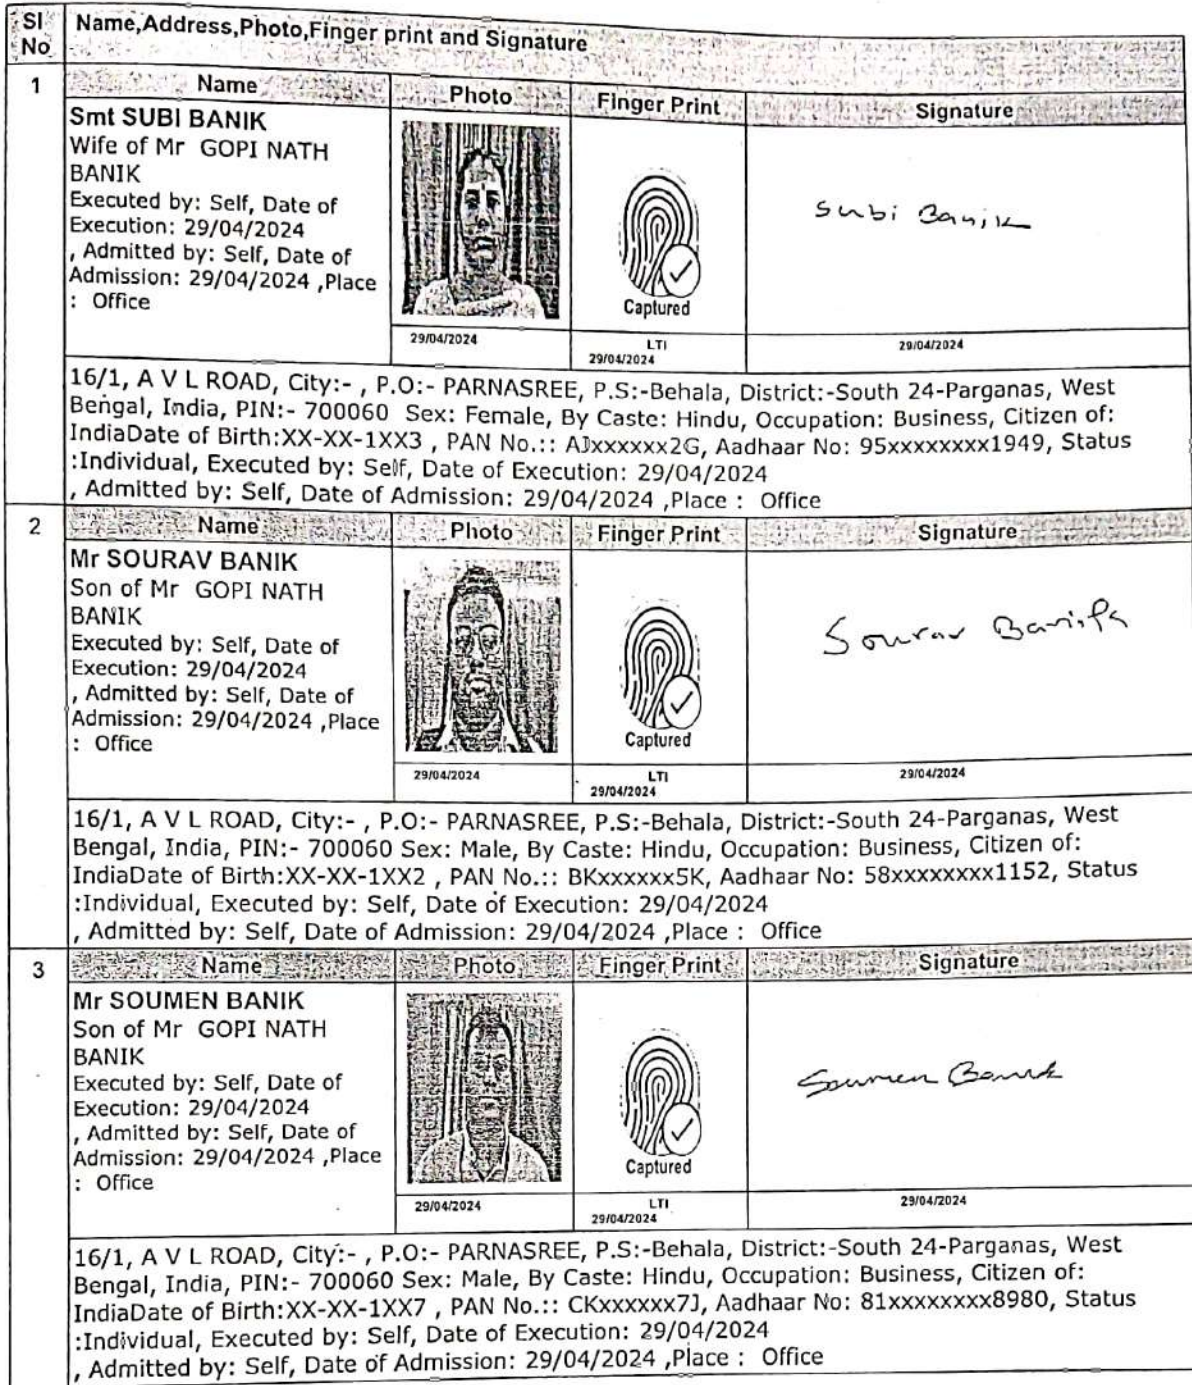 Sl No
Name,Address,Photo,Finger print and Signature
1
Name
Photo
Finger Print
Signature
Smt SUBI BANIK
Wife of Mr GOPI NATH
BANIK
Executed by: Self, Date of
Execution: 29/04/2024
, Admitted by: Self, Date of
Admission: 29/04/2024 ,Place
: Office
Captured
Subi Banik
29/04/2024
LTI
29/04/2024
29/04/2024
16/1, A V L ROAD, City:- , P.O:- PARNASREE, P.S:-Behala, District:-South 24-Parganas, West
Bengal, India, PIN:- 700060 Sex: Female, By Caste: Hindu, Occupation: Business, Citizen of:
IndiaDate of Birth:XX-XX-1XX3 , PAN No.:: AJxxxxxx2G, Aadhaar No: 95xxxxxxxx1949, Status
:Individual, Executed by: Self, Date of Execution: 29/04/2024
, Admitted by: Self, Date of Admission: 29/04/2024 ,Place : Office
2
Name
Photo
Finger Print
Signature
Mr SOURAV BANIK
Son of Mr GOPI NATH
BANIK
Executed by: Self, Date of
Execution: 29/04/2024
, Admitted by: Self, Date of
Admission: 29/04/2024 ,Place
: Office
Captured
Sourav Banik
29/04/2024
LTI
29/04/2024
29/04/2024
16/1, A V L ROAD, City:- , P.O:- PARNASREE, P.S:-Behala, District:-South 24-Parganas, West
Bengal, India, PIN:- 700060 Sex: Male, By Caste: Hindu, Occupation: Business, Citizen of:
IndiaDate of Birth:XX-XX-1XX2 , PAN No.:: BKxxxxxx5K, Aadhaar No: 58xxxxxxxx1152, Status
:Individual, Executed by: Self, Date of Execution: 29/04/2024
, Admitted by: Self, Date of Admission: 29/04/2024 ,Place : Office
3
Name
Photo
Finger Print
Signature
Mr SOUMEN BANIK
Son of Mr GOPI NATH
BANIK
Executed by: Self, Date of
Execution: 29/04/2024
, Admitted by: Self, Date of
Admission: 29/04/2024 ,Place
: Office
Captured
Soumen Banik
29/04/2024
LTI
29/04/2024
29/04/2024
16/1, A V L ROAD, City:- , P.O:- PARNASREE, P.S:-Behala, District:-South 24-Parganas, West
Bengal, India, PIN:- 700060 Sex: Male, By Caste: Hindu, Occupation: Business, Citizen of:
IndiaDate of Birth:XX-XX-1XX7 , PAN No.:: CKxxxxxx7J, Aadhaar No: 81xxxxxxxx8980, Status
:Individual, Executed by: Self, Date of Execution: 29/04/2024
, Admitted by: Self, Date of Admission: 29/04/2024 ,Place : Office